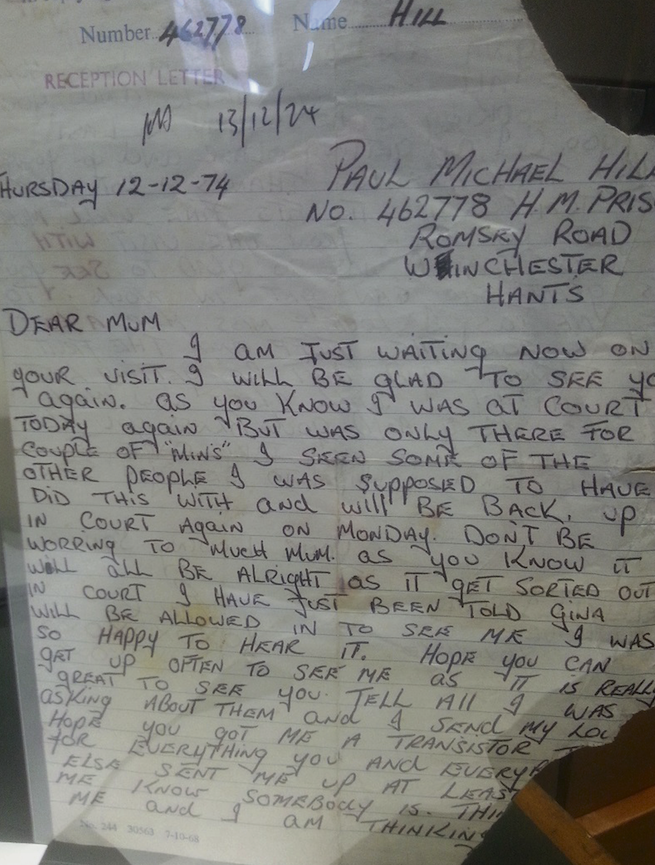 Number 462778 Name HILL
RECEPTION LETTER
13/12/74
THURSDAY 12-12-74
PAUL MICHAEL HILL
NO. 462778 H.M. PRIS
ROMSEY ROAD
WINCHESTER
HANTS
DEAR MUM
I AM JUST WAITING NOW ON
YOUR VISIT. I WILL BE GLAD TO SEE YO
AGAIN. AS YOU KNOW I WAS AT COURT
TODAY AGAIN BUT WAS ONLY THERE FOR
COUPLE OF "MINS" I SEEN SOME OF THE
OTHER PEOPLE I WAS SUPPOSED TO HAVE
DID THIS WITH AND WILL BE BACK, UP
IN COURT AGAIN ON MONDAY. DON'T BE
WORRING TO MUCH MUM. AS YOU KNOW IT
WILL ALL BE ALRIGHT AS IT GET SORTED OUT
IN COURT I HAVE JUST BEEN TOLD GINA
WILL BE ALLOWED IN TO SEE ME I WAS
SO HAPPY TO HEAR IT. HOPE YOU CAN
GET UP OFTEN TO SEE ME AS IT IS REALLY
GREAT TO SEE YOU. TELL ALL I WAS
ASKING ABOUT THEM AND I SEND MY LOV
HOPE YOU GOT ME A TRANSISTOR
FOR EVERYTHING YOU AND EVERY
ELSE SENT ME UP AT LEAS
ME KNOW SOMEBODY IS THIN
ME AND I AM THINKING
No. 244 30563 7-10-68